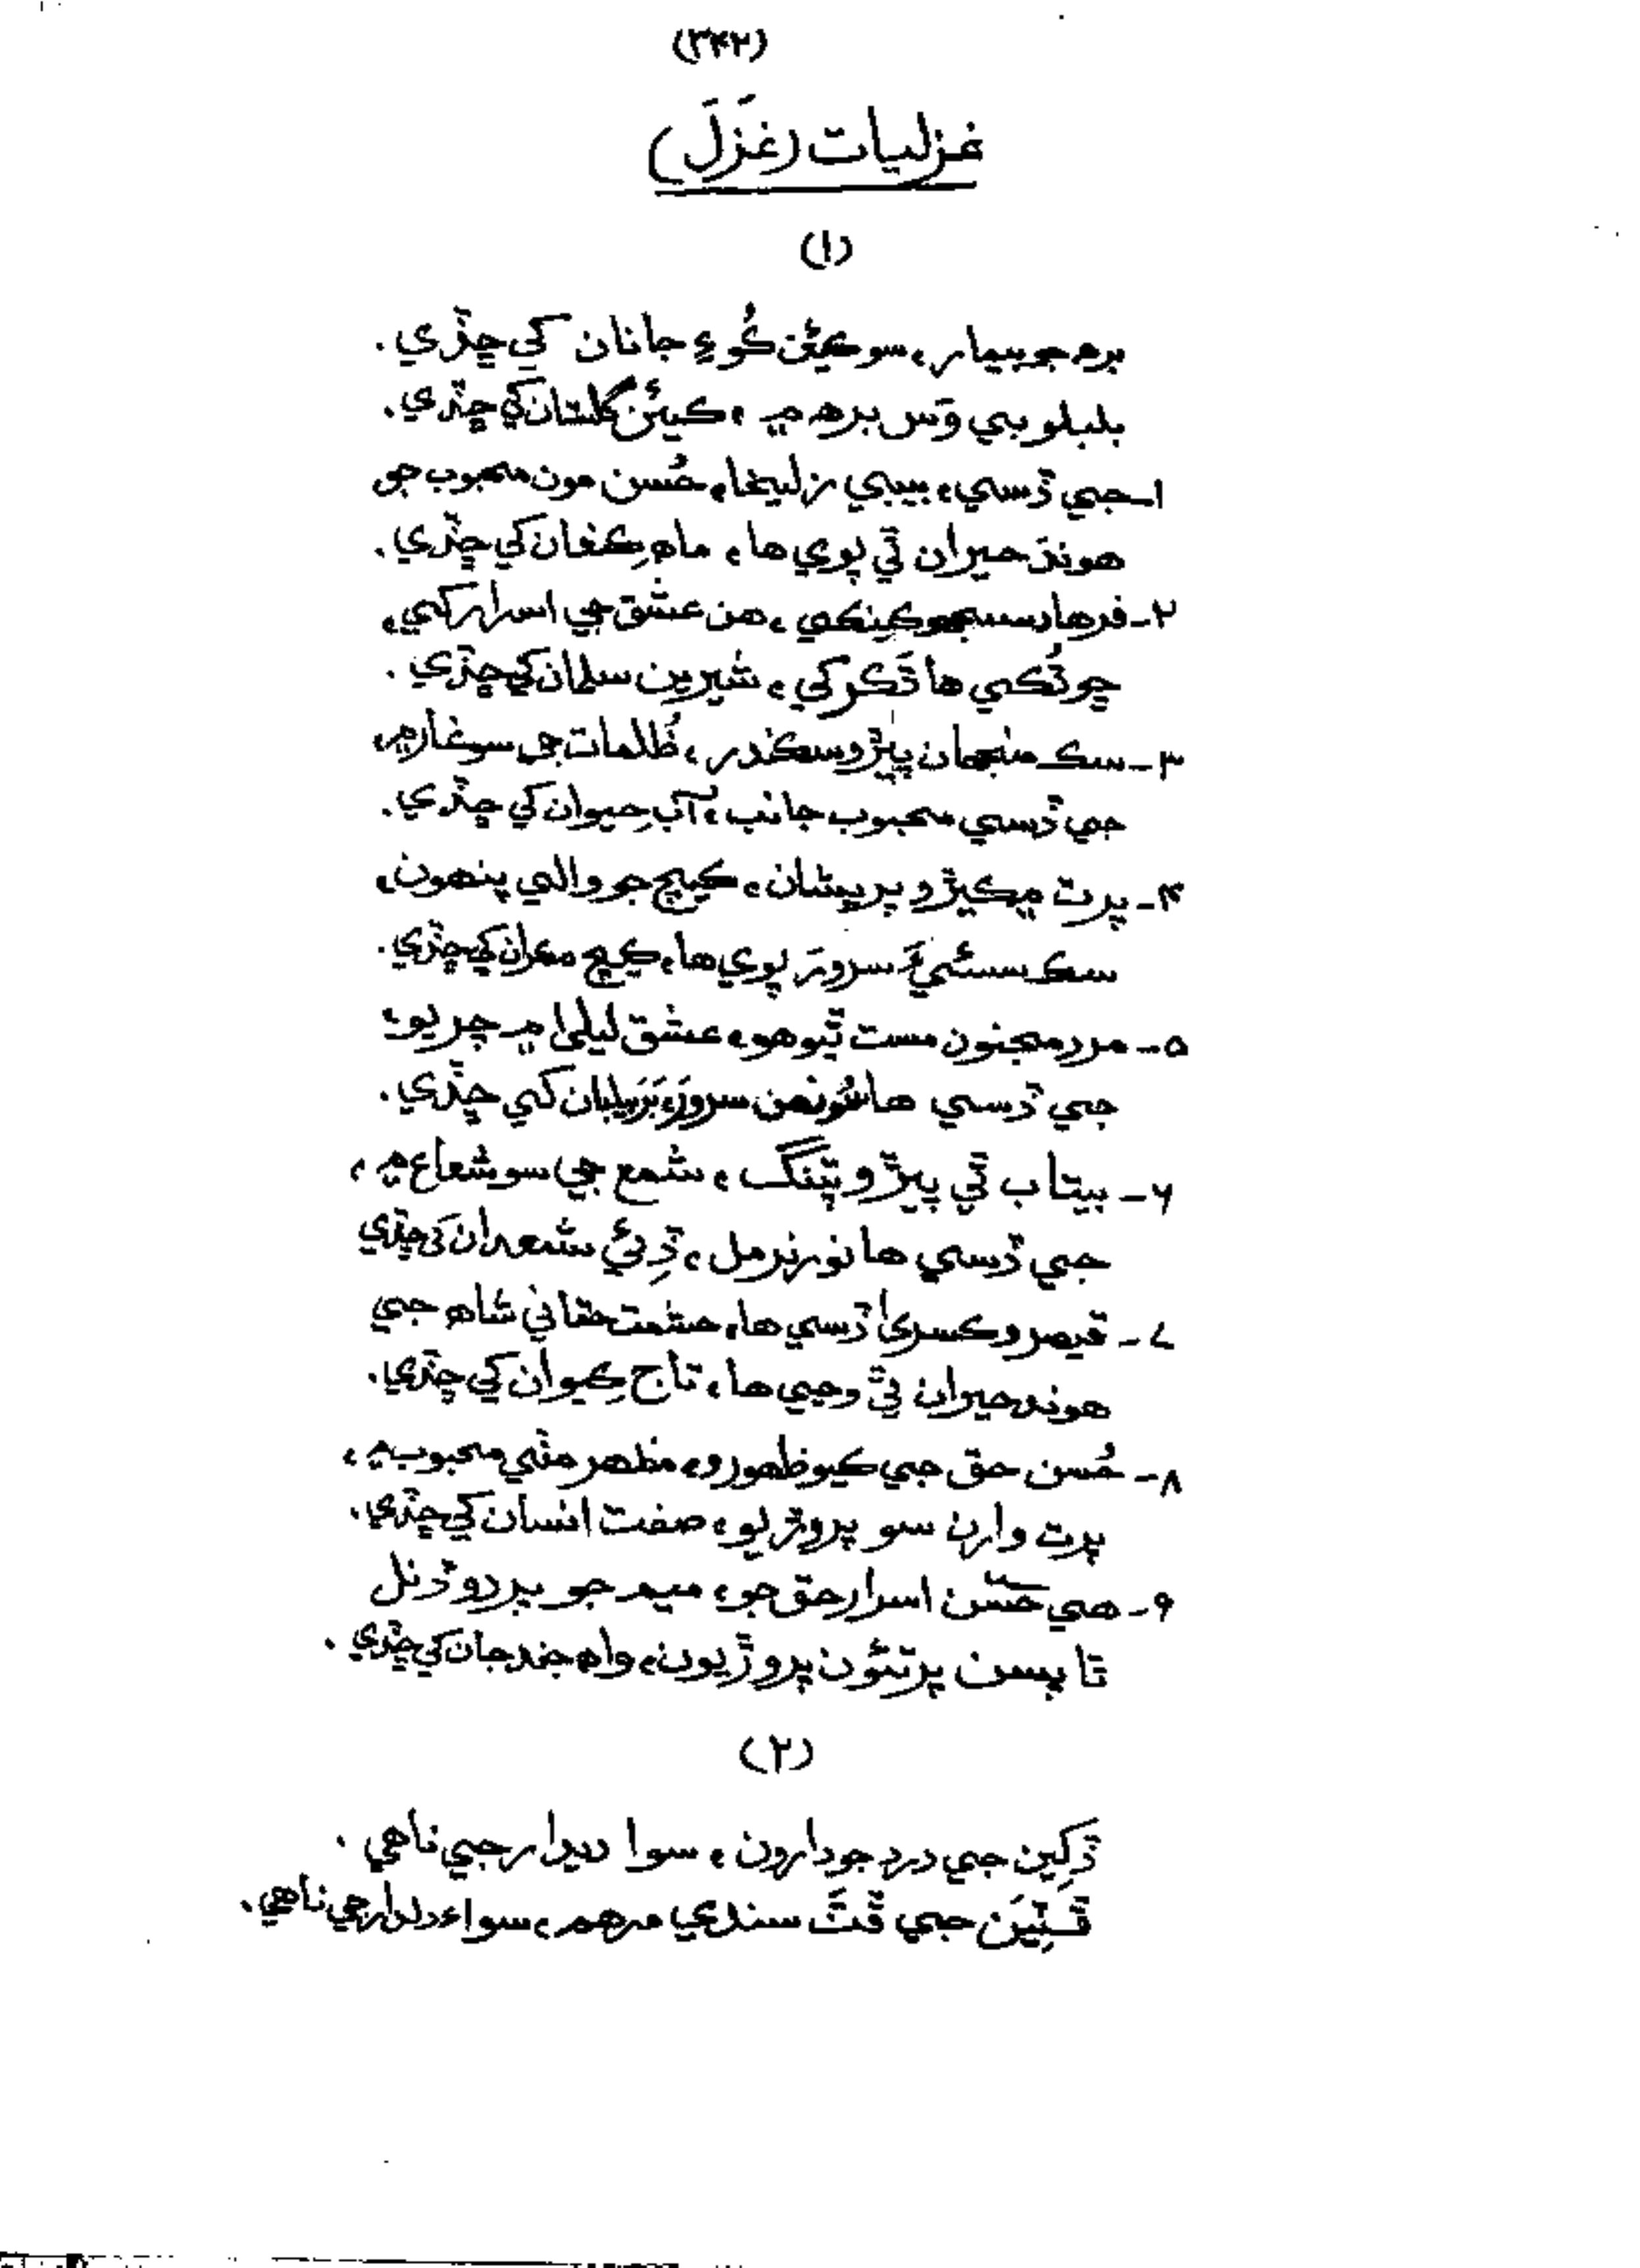 (۳۴۲)
غزليات (غَزَلَ)
(۱)
برھ جو بيمار، سو ڪيئن ڪُوءِ جانان کي ڇڏي.
بلبلو بي وَس برھ ۾، ڪيئن گلستان کي ڇڏي.
۱ـ جي ڏسي، بيبي زليخا، حُسن مون محبوب جو
هوندَ حيران ٿي پوي ها، ماھِ ڪنعان کي ڇڏي.
۲ـ فرهاد سمجهو ڪينڪي، هن عشق جي اسرار کي،
ڇو ٽُڪي ها ٽَڪر کي، شيرين سلمان کي ڇڏي.
۳ـ سڪ منجهان پيڙو سڪندر، ظُلمات جي سو غار ۾،
جي ڏسي محبوب جانب، آبِ حيوان کي ڇڏي.
۴ـ پرت ۾ ڪيڙو پريشان، ڪيچ جو والي پنهون،
سڪ سسئيءَ سرورَ پوي ها، ڪيچ مڪران کي ڇڏي.
۵ـ مرد مجنون مست ٿيو هو، عشق ليليٰ ۾ چريو،
جي ڏسي ها سُونهن سرورَ، بَرَ بيابان کي ڇڏي.
۶ـ بيتاب ٿي پيڙو پتنگ، شمع جي سو شعاع ۾،
جي ڏسي ها نور نرمل، ڏِئي شمعدان کي ڇڏي
۷ـ قيصر و ڪسريٰ ڏسي ها، حشمت حقاني شاھ جي
هوند حيران ٿي وڃي ها، تاج ڪيوان کي ڇڏي.
۸ـ حُسن حق جي ڪيو ظهورو، مظهر مٺي محبوب ۾،
پرت وارن سو پروڙيو، صفت انسان کي ڇڏي.
۹ـ هي حَسن اسرار حق جو، ميم جو پردو ڏنل
تا پسن پرتئون پروڙيون، واھ جند جان کي ڇڏي.
(۲)
ڏکين جي درد جو دارون، سوا ديدار جي ناهي.
ڦٽِيَن جي ڦَٽَ سندي مرهم، سواءِ دلدار جي ناهي.